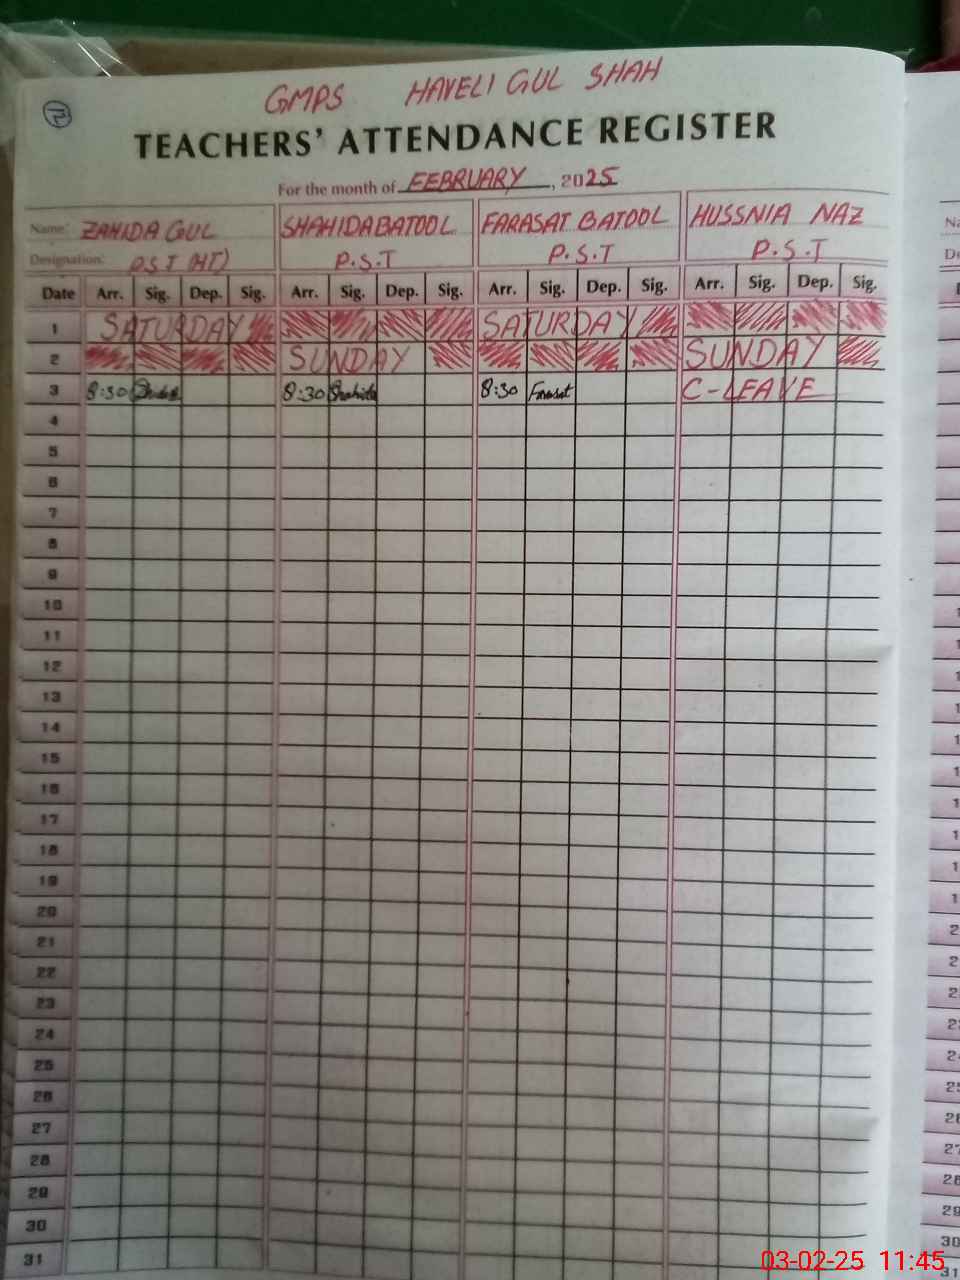 GMPS HAVELI GUL SHAH
TEACHERS' ATTENDANCE REGISTER
For the month of FEBRUARY, 2025
Name: ZAHIDA GUL SHAHIDA BATOOL FARASAT BATOOL HUSSNIA NAZ
Designation: P.S.T (HT) P.S.T P.S.T P.S.T
Date Arr. Sig. Dep. Sig. Arr. Sig. Dep. Sig. Arr. Sig. Dep. Sig. Arr. Sig. Dep. Sig.
1 SATURDAY SATURDAY
2 SUNDAY SUNDAY
3 8:30 8:30 Shahida 8:30 Farasat C-LEAVE
4
5
6
7
8
9
10
11
12
13
14
15
16
17
18
19
20
21
22
23
24
25
26
27
28
29
30
31
03-02-25 11:45